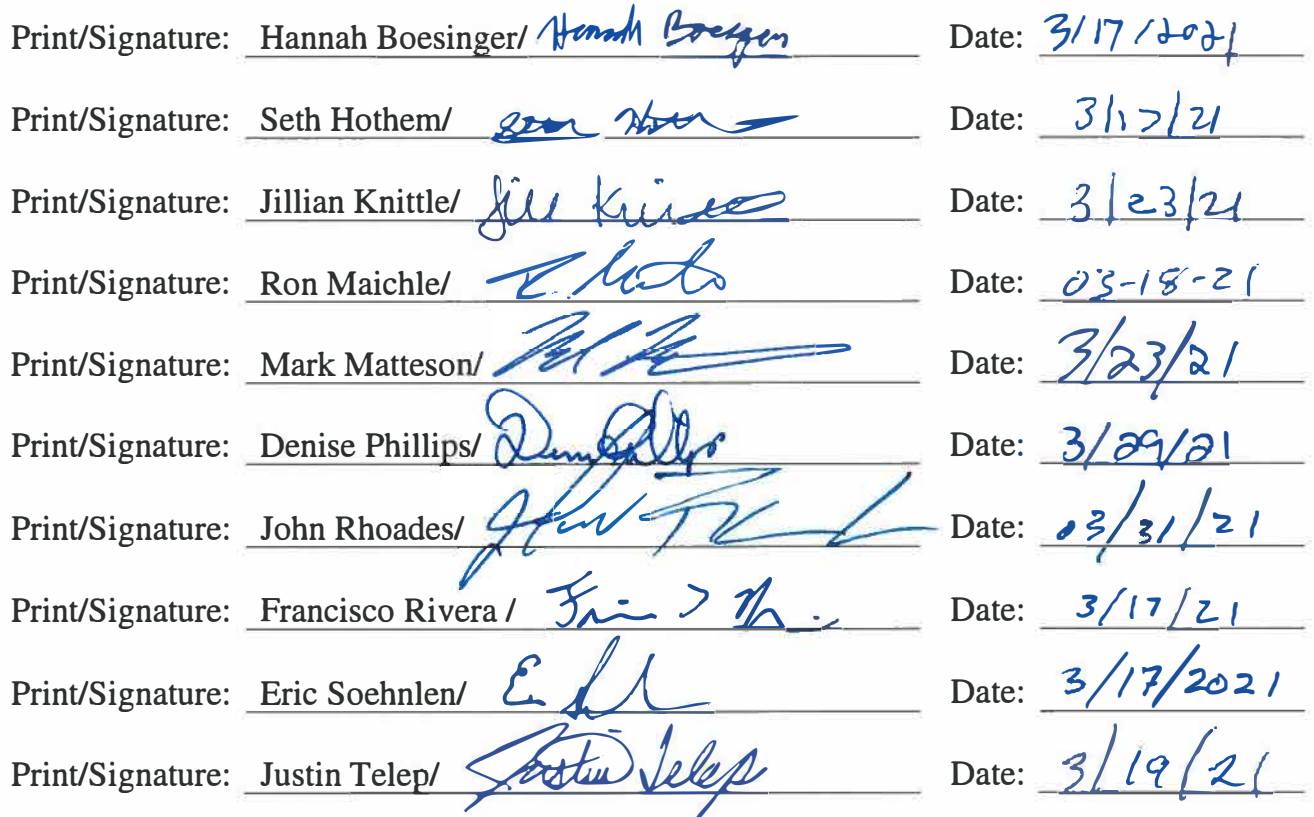 Print/Signature: Hannah Boesinger/ Hannah Boesinger Date: 3/17/2021
Print/Signature: Seth Hothem/ Date: 3/17/21
Print/Signature: Jillian Knittle/ Jill Date: 3/23/21
Print/Signature: Ron Maichle/ R. Date: 03-18-21
Print/Signature: Mark Matteson/ Date: 3/23/21
Print/Signature: Denise Phillips/ Date: 3/29/21
Print/Signature: John Rhoades/ Date: 03/31/21
Print/Signature: Francisco Rivera / Date: 3/17/21
Print/Signature: Eric Soehnlen/ Date: 3/17/2021
Print/Signature: Justin Telep/ Justin Telep Date: 3/19/21